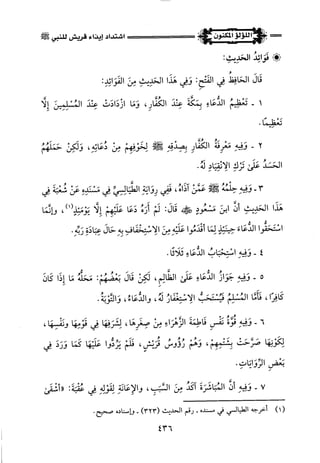 اللؤلؤ المكنون
اشتداد إيذاء قريش للنبي ﷺ
* فَوَائِدُ الحَدِيثِ:
قَالَ الحَافِظُ فِي الفَتْحِ: وَفِي هَذَا الحَدِيثِ مِنَ الفَوَائِدِ:
١ - تَعْظِيمُ الدُّعَاءِ بِمَكَّةَ عِنْدَ الكُفَّارِ، وَمَا ازْدَادَتْ عِنْدَ المُسْلِمِينَ إِلَّا
تَعْظِيمًا.
٢ - وَفِيهِ مَعْرِفَةُ الكُفَّارِ بِصِدْقِهِ ﷺ لِخَوْفِهِمْ مِنْ دُعَائِهِ، وَلَكِنْ حَمَلَهُمُ
الحَسَدُ عَلَى تَرْكِ الِانْقِيَادِ لَهُ.
٣ - وَفِيهِ حِلْمُهُ ﷺ عَمَّنْ آذَاهُ، فَفِي رِوَايَةِ الطَّيَالِسِيِّ فِي مُسْنَدِهِ عَنْ شُعْبَةَ فِي
هَذَا الحَدِيثِ أَنَّ ابنَ مَسْعُودٍ ﷺ قَالَ: لَمْ أَرَهُ دَعَا عَلَيْهِمْ إِلَّا يَوْمَئِذٍ(١)، وَإِنَّمَا
اسْتَحَقُّوا الدُّعَاءَ حِينَئِذٍ لِمَا أَقْدَمُوا عَلَيْهِ مِنَ الِاسْتِخْفَافِ بِهِ حَالَ عِبَادَةِ رَبِّهِ.
٤ - وَفِيهِ اسْتِحْبَابُ الدُّعَاءِ ثَلَاثًا.
٥ - وَفِيهِ جَوَازُ الدُّعَاءِ عَلَى الظَّالِمِ، لَكِنْ قَالَ بَعْضُهُمْ: مَحَلُّهُ مَا إِذَا كَانَ
كَافِرًا، فَأَمَّا المُسْلِمُ فَيُسْتَحَبُّ الِاسْتِغْفَارُ لَهُ، وَالدُّعَاءُ، وَالتَّوْبَةُ.
٦ - وَفِيهِ قُوَّةُ نَفْسِ فَاطِمَةَ الزَّهْرَاءِ مِنْ صِغَرِهَا، لِشَرَفِهَا فِي قَوْمِهَا وَنَفْسِهَا،
لِكَوْنِهَا صَرَّحَتْ بِشَتْمِهِمْ، وَهُمْ رُؤُوسُ قُرَيْشٍ، فَلَمْ يَرُدُّوا عَلَيْهَا كَمَا وَرَدَ فِي
بَعْضِ الرِّوَايَاتِ.
٧ - وَفِيهِ أَنَّ المُبَاشَرَةَ آكَدُ مِنَ السَّبَبِ، وَالإِعَانَةِ لِقَوْلِهِ فِي عُقْبَةَ: «أَشْقَى
(١) أخرجه الطيالسي في مسنده، رقم الحديث (٣٢٣) - وإسناده صحيح.
٤٣٦